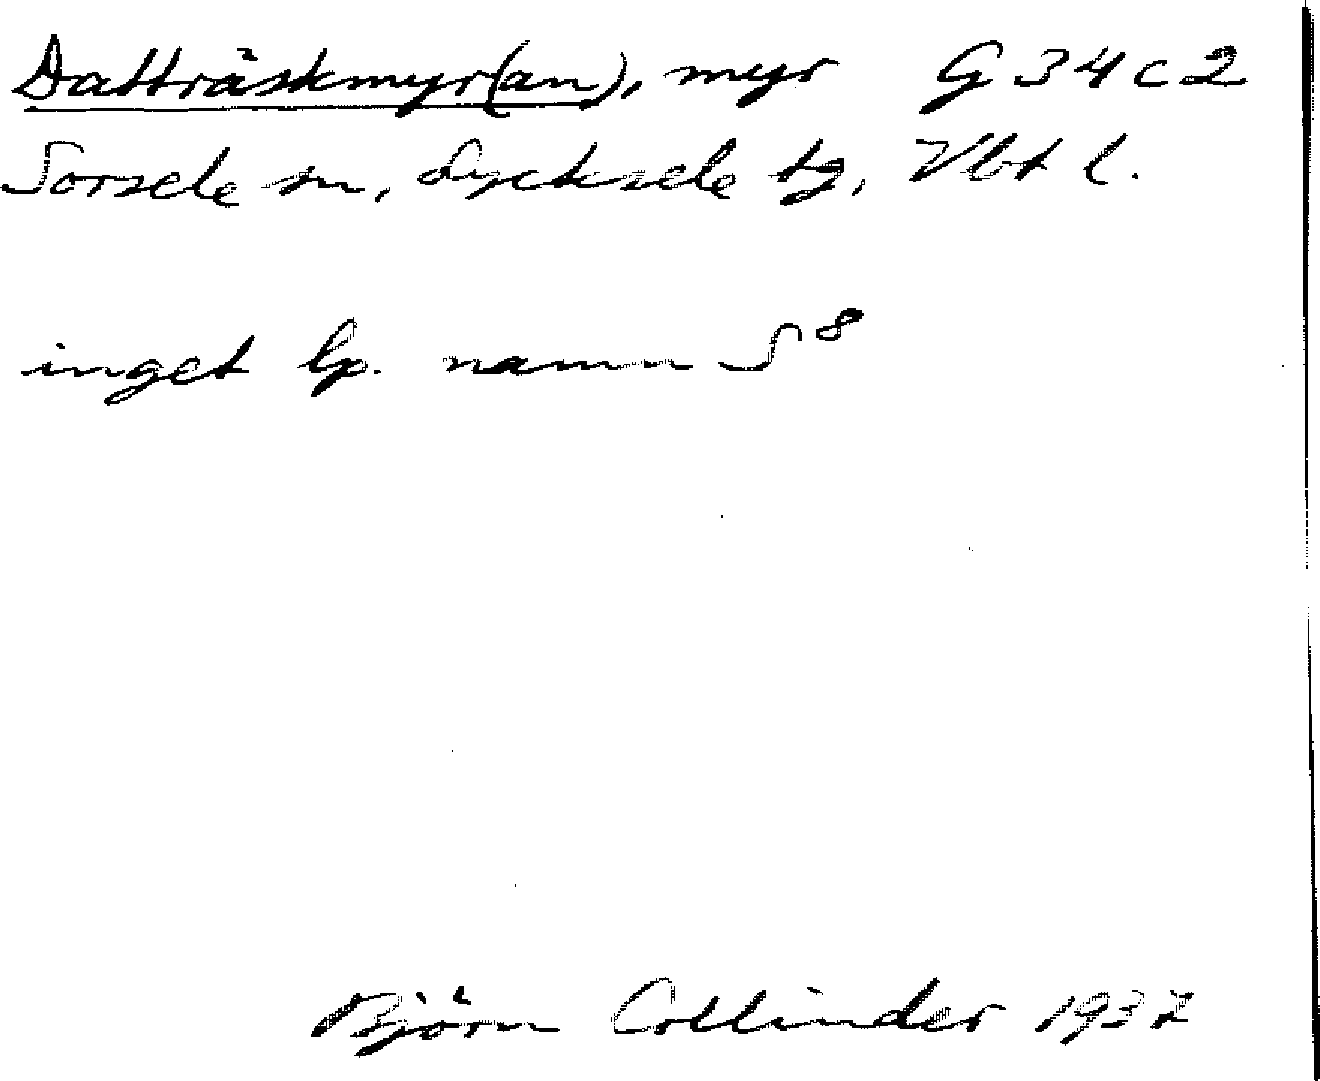 Datträskmyr(an), myr G 34 c 2
Sorsele sn, Lycksele tg, Vbt l.
inget lp. namn S 8
Björn Collinder 1937